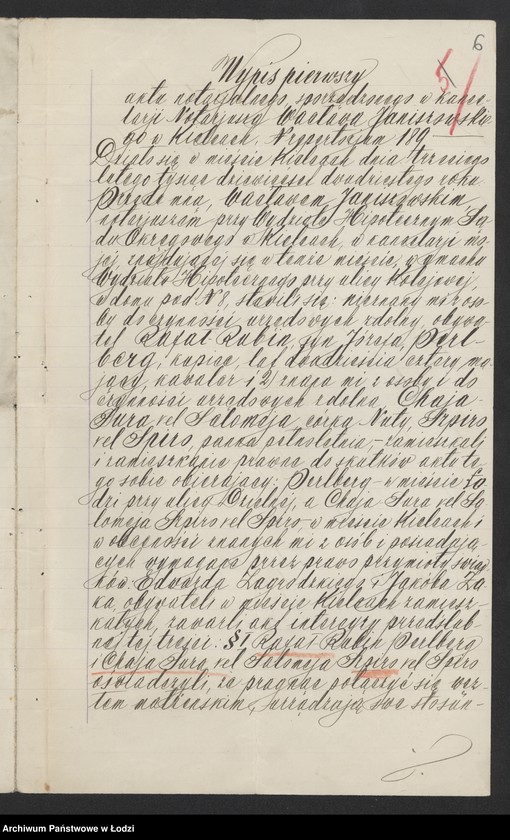 6
5
Wypis pierwszy
aktu notarjalnego, sporządzonego w kance-
larji Notarjusza Wacława Janiszewskie-
go w Kielcach, Repertorjum 189
Działo się w mieście Kielcach dnia trzeciego
lutego tysiąc dziewięćset dwudziestego roku.
Przede mną, Wacławem Janiszewskim
notarjuszem przy Wydziale Hipotecznym Są-
du Okręgowego w Kielcach, w kancelarji mo-
jej znajdującej się w temże mieście, w gmachu
Wydziału Hipotecznego przy ulicy Kolejowej,
w domu pod № stawili się: nieznany mi z oso-
by do czynności urzędowych zdolny, obywa-
tel Rafał Rubin, syn Józefa, Perl-
berg, kupiec, lat dwadzieścia cztery ma-
jący, kawaler i 2) znana mi z osoby i do
czynności urzędowych zdolna, Chaja
Sura vel Salomeja, córka Nuty, Szpiro
vel Spiro, panna pełnoletnia, – zamieszkali
i zamieszkanie prawne do skutków aktu te-
go sobie obierający: Perlberg w mieście Ło-
dzi przy ulicy Dzielnej, a Chaja Sura vel Sa-
lomeja Szpiro vel Spiro w mieście Kielcach i
w obecności znanych mi z osób i posiadają-
cych wymagane przez prawo przymioty świad-
ków: Edwarda Zagrodzkiego i Jakóba Ża-
ka, obywateli w mieście Kielcach zamiesz-
kałych, zawarli akt intercyzy przedślub-
nej tej treści: § 1, Rafał Rubin Perlberg
i Chaja Sura vel Salomeja Szpiro vel Spiro
oświadczyli, że pragnąc połączyć się węz-
łem małżeńskim, urządzają swe stosun-
Archiwum Państwowe w Łodzi